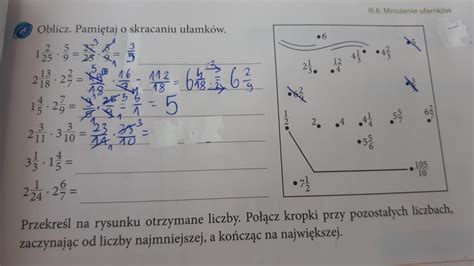 III.6. Mnożenie ułamków
Oblicz. Pamiętaj o skracaniu ułamków.
1 2/25 · 5/9 = 27/25 · 5/9 = 3/5
2 13/18 · 2 2/7 = /18 · 16/7 = 112/18 = 6 4/18 = 6 2/9
1 4/5 · 2 7/9 = 9/5 · 25/9 = 5/1 = 5
2 3/11 · 3 3/10 = 23/ · /10 =
3 1/3 · 1 4/5 =
2 1/24 · 2 6/7 =
6
2 1/3
12/4
4 1/3
4 2/3
6 2/9
1/2
2
4
4 1/4
5 5/7
6 2/7
5 5/6
7 1/2
105/10
Przekreśl na rysunku otrzymane liczby. Połącz kropki przy pozostałych liczbach,
zaczynając od liczby najmniejszej, a kończąc na największej.